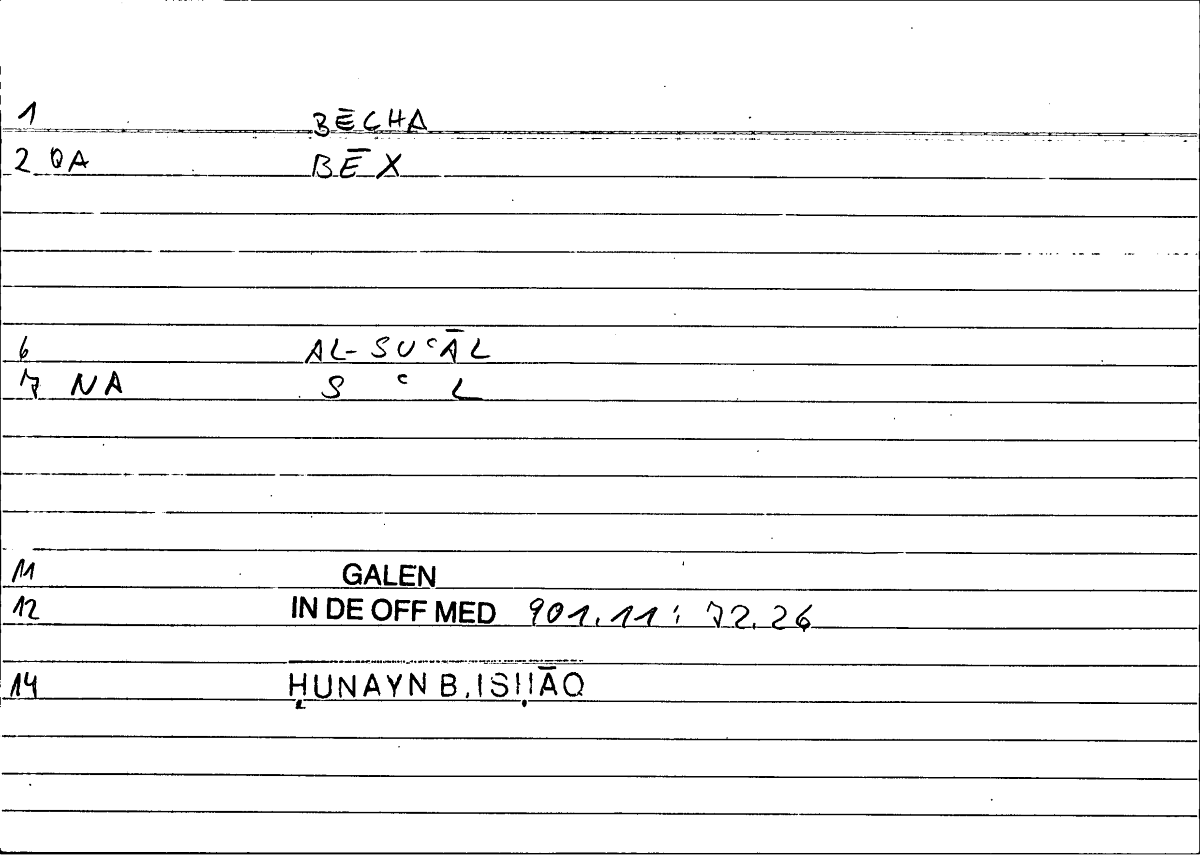 1 BĒCHA
2 QA BĒX
6 AL-SUʿĀL
7 NA S ʿ L
11 GALEN
12 IN DE OFF MED 901.11 : 72.26
14 ḤUNAYN B. ISḤĀQ